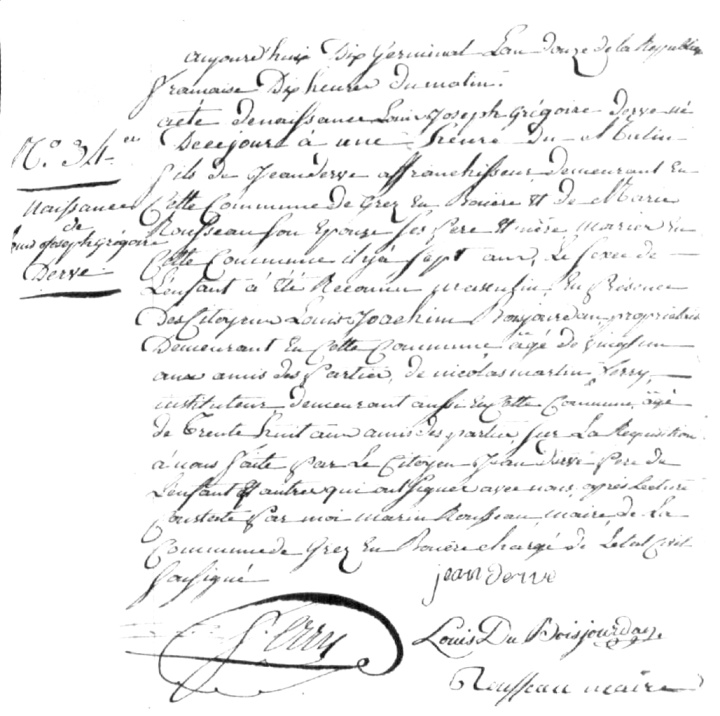 aujourd'huix Dix Germinal L'an douze de la Republique
francaise Dix heures du matin.
acte denaissance Louis Joseph Grégoire derve né
Dece jour à une heure du Matin
fils de Jean derve affranchisseur demeurant En
Cette Commune de Grez En Bouère Et de Marie
Rousseau Son Epouze Ses pere Et mère mariez En
Cette Commune il y à Sept ans, Le Sexe de
L'enfant à été Reconnu masculin En Présence
Des Citoyens Louis Joachim Boisjourdan proprietaire
Demeurant En Cette Commune âgé de vingt un
ans amis des Parties, de nicolas martin Lerry,
instituteur demeurant aussi En Cette Commune, âgé
de Trente huit ans amis des parties, Sur La Requisition
à nous faite Par Le Citoyen Jean derve Pere de
L'enfant Et autres qui ont Signer avec nous, après Lecture
Constaté Par moi marin Rousseau, maire de La
Commune de Grez En Bouère chargé de L'etat Civil
Soussigné
N.º 34.
Naissance
de
Louis Joseph Grégoire
Derve
jean derve
Lerry
Louis Du Boisjourdan
Rousseau maire